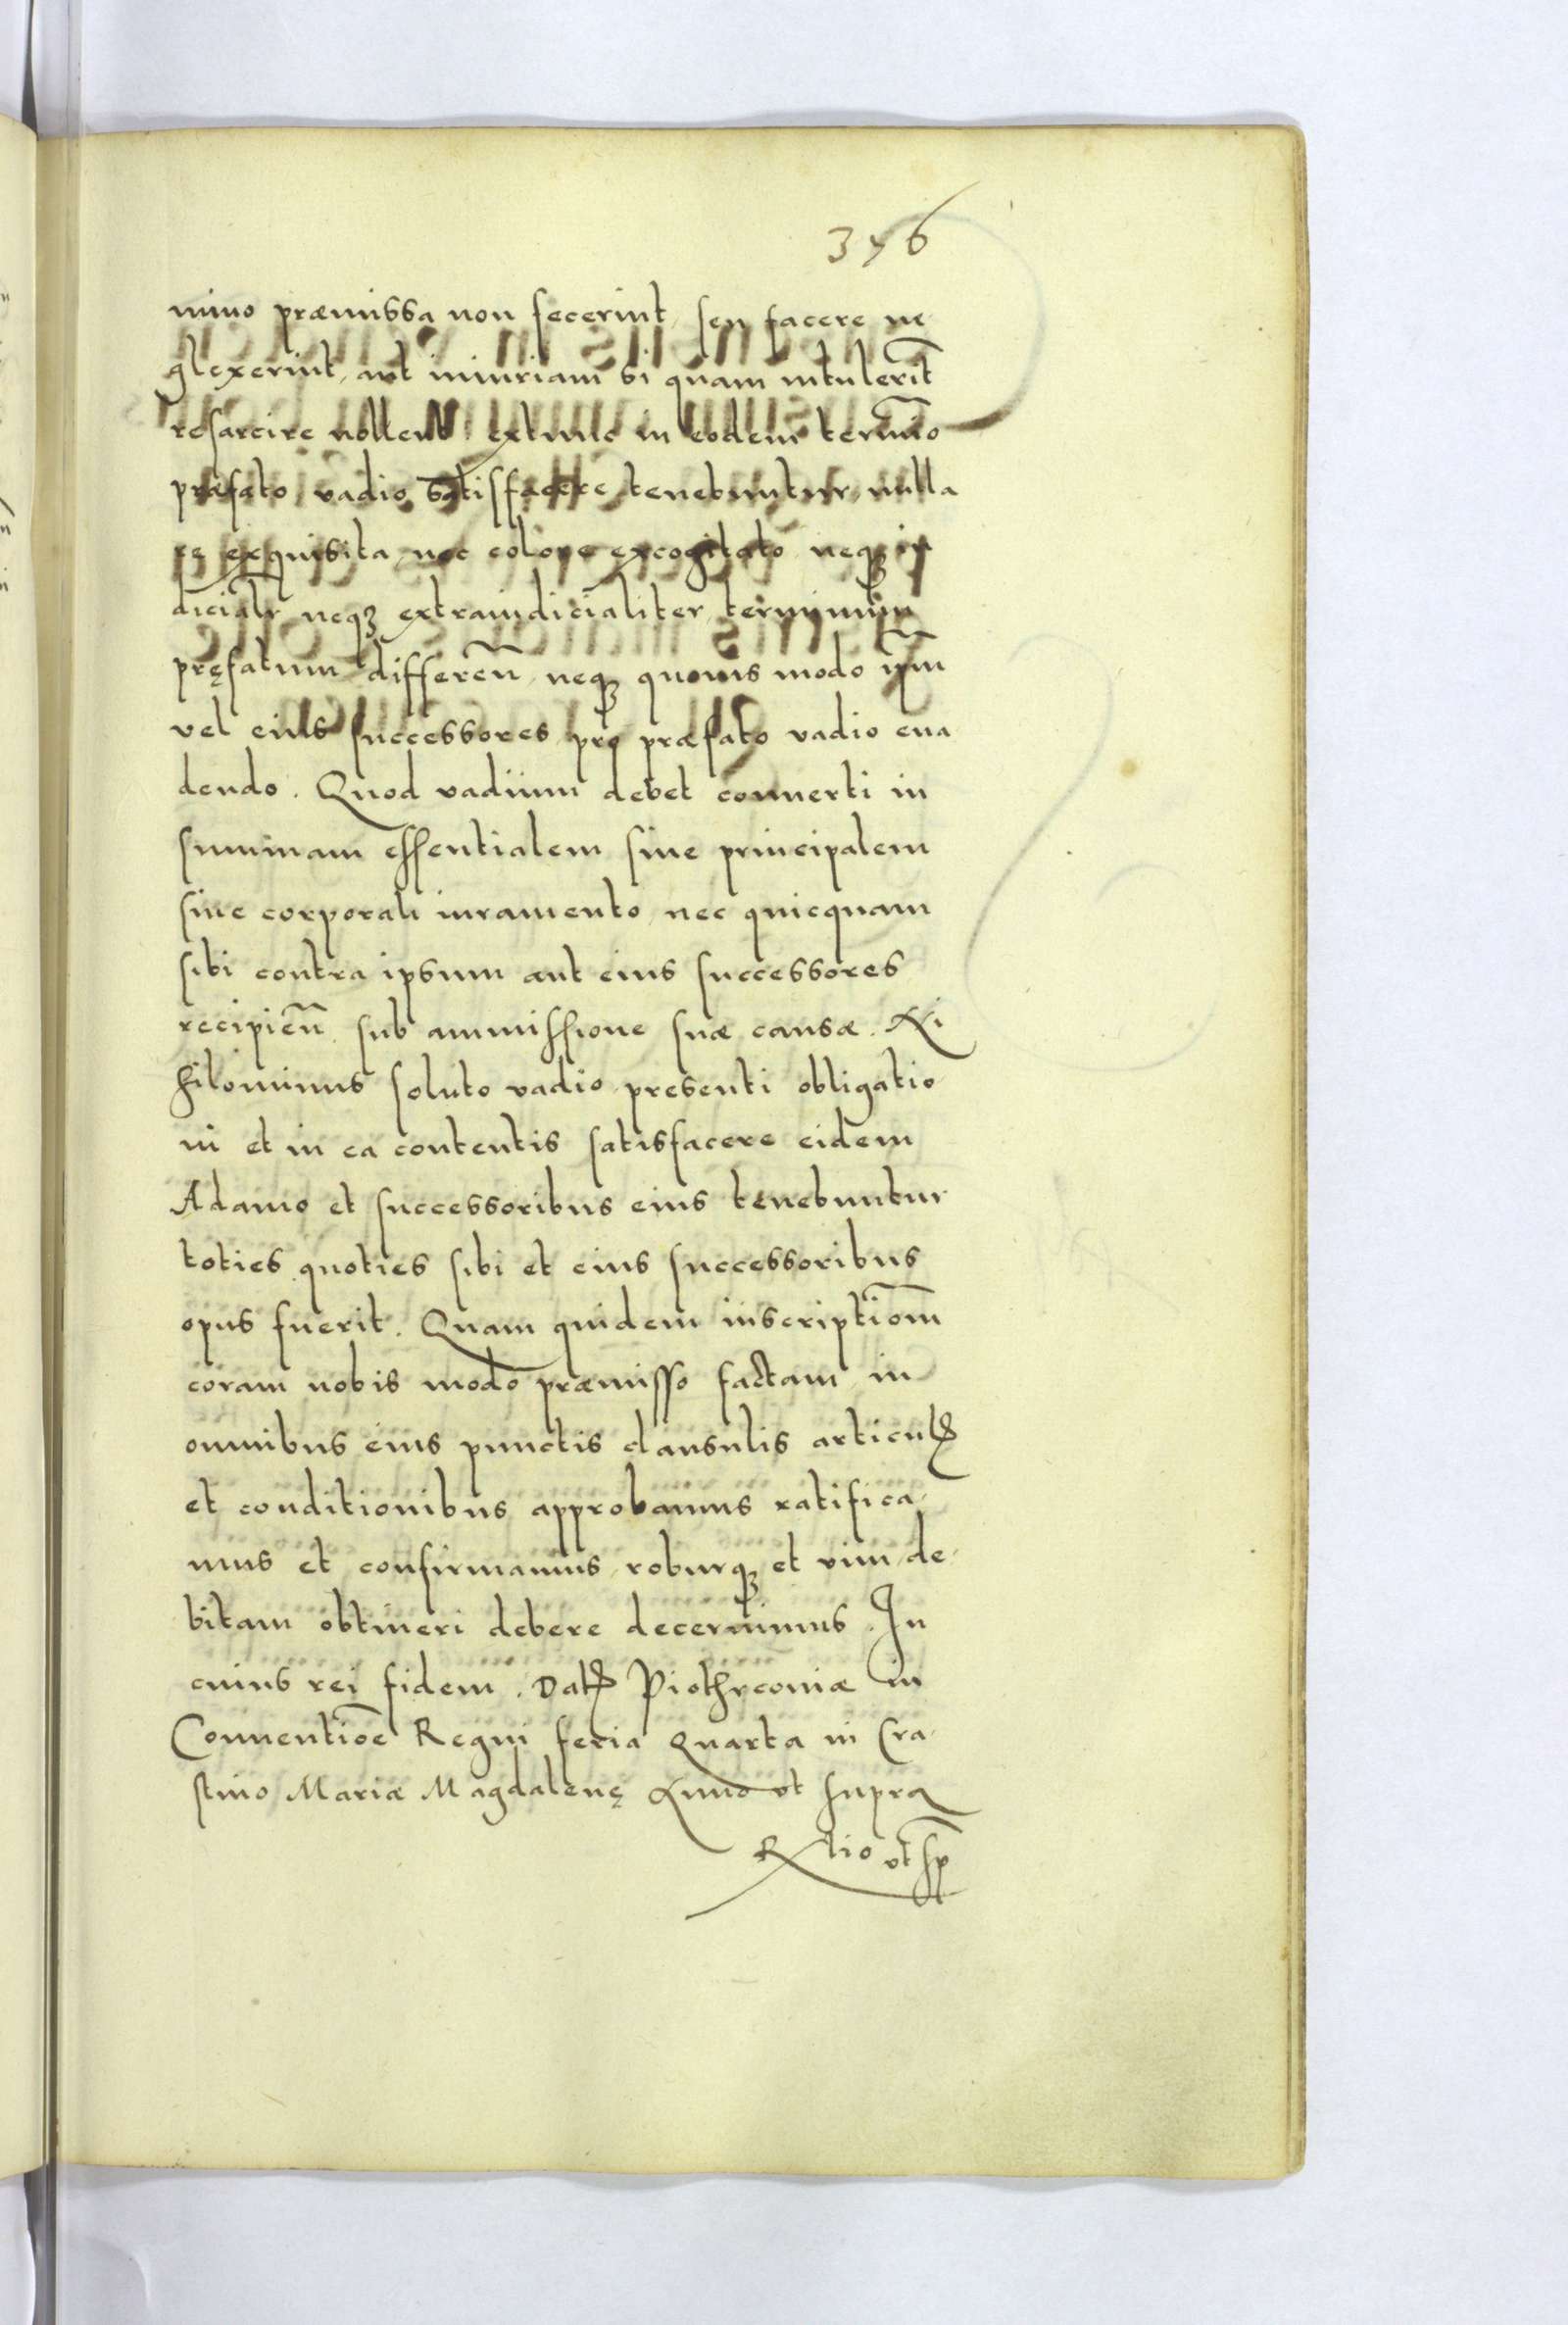 376
mino præmissa non fecerint, seu facere ne
glexerint, aut iniuriam si quam intulerit̄
resarcire nollent extunc in eodem termīo
præfato vadio satisfacere tenebuntur, nulla
re exquisita nec colore excogitato neqꝫ iu
dicialr̄ neqꝫ extraiudicialiter, terminum
pręfatum differen̄, neqꝫ quouis modo ip̄m
vel eius successores pro præfato vadio eua
dendo. Quod vadium debet conuerti in
summam essentialem siue principalem
sine corporali iuramento, nec quicquam
sibi contra ipsum aut eius successores
recipien̄ sub ammissione suæ causæ. Ni
hilominus soluto vadio, presenti obligatio
ni et in ea contentis satisfacere eidem
Adamo et successoribus eius tenebuntur
toties quoties sibi et eius successoribus
opus fuerit. Quam quidem inscriptiom̄
coram nobis modo præmisso factam in
omnibus eius punctis clausulis articulꝭ
et conditionibus approbamus ratifica-
mus et confirmamus, roburqꝫ et vim de-
bitam obtineri debere decernimus. In
cuius rei fidem. Datꝭ Piothrconiæ in
Conuentiōe Regni feria Quarta in Cra-
stino Mariæ Magdalenę Anno vt supra
Rtio vt sp̄